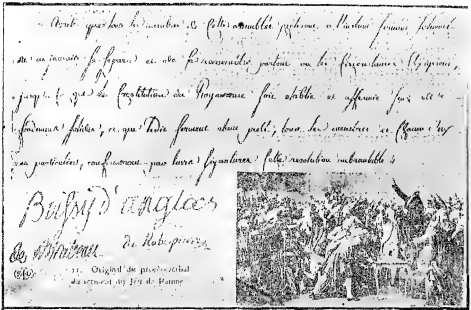 Arrête que tous les membres de cette assemblée prêteront, à l'instant serment solennel
de ne jamais se séparer et de se rassembler partout où les circonstances l'exigeront,
jusqu'à ce que la Constitution du Royaume soit établie et affermie sur des
fondements solides, et que ledit serment étant prêté, tous les membres et chacun d'eux
en particulier, confirmeront par leurs signatures cette résolution inébranlable
Boissy d'anglas
de Robespierre
11. Original du procès-verbal
du serment du Jeu de Paume